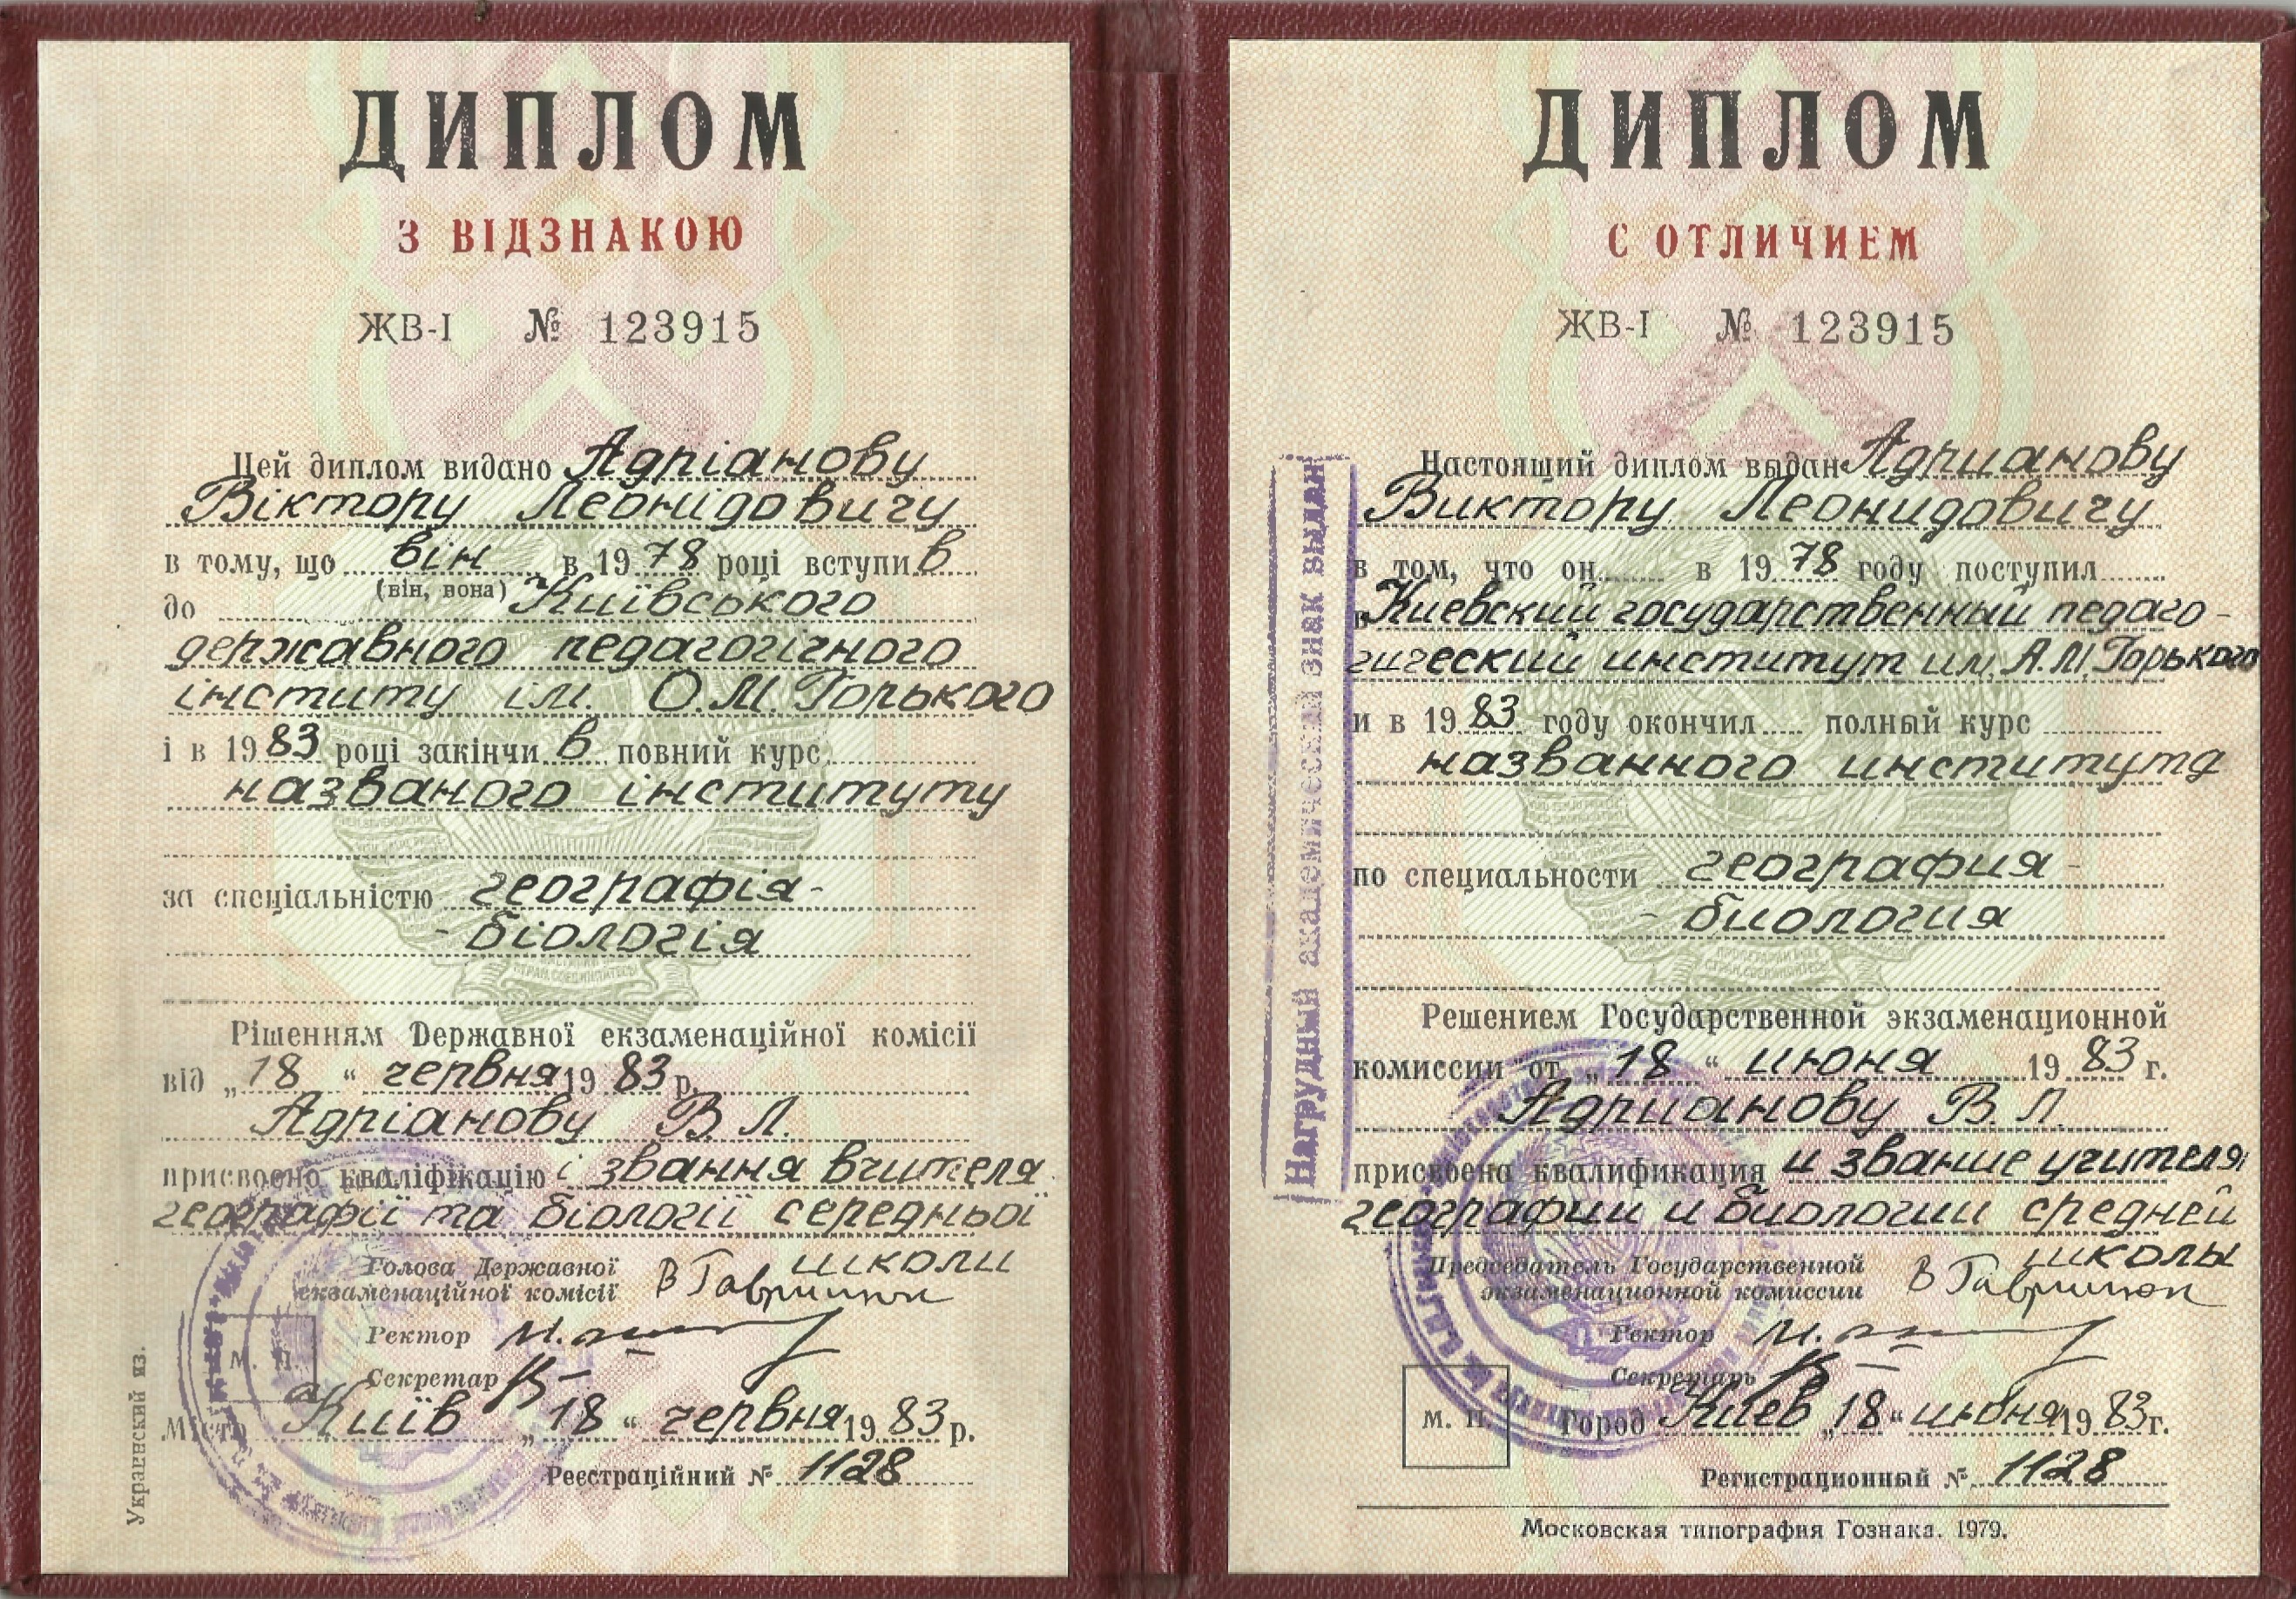 ДИПЛОМ
З ВІДЗНАКОЮ
ЖВ-І № 123915
Цей диплом видано Адріанову
Віктору Леонідовичу
в тому, що він в 1978 році вступив
(він, вона)
до Київського
державного педагогічного
інституту ім. О.М. Горького
і в 1983 році закінчив повний курс
названого інституту
за спеціальністю географія-
- біологія
Рішенням Державної екзаменаційної комісії
від „18“ червня 1983 р.
Адріанову В. Л.
присвоєно кваліфікацію і звання вчителя
географії та біології середньої
школи
Голова Державної
екзаменаційної комісії
Ректор
Секретар
М. П.
Місто Київ „18“ червня 1983 р.
Реєстраційний № 1128
Украинский из.
ДИПЛОМ
С ОТЛИЧИЕМ
ЖВ-І № 123915
Настоящий диплом выдан Адрианову
Виктору Леонидовичу
в том, что он в 1978 году поступил
в Киевский государственный педаго-
гический институт им. А.М. Горького
и в 1983 году окончил полный курс
названного института
по специальности география -
- биология
Решением Государственной экзаменационной
комиссии от „18“ июня 1983 г.
Адрианову В. Л.
присвоена квалификация и звание учителя
географии и биологии средней
школы
Председатель Государственной
экзаменационной комиссии
Ректор
Секретарь
М. П.
Город Киев „18“ июня 1983 г.
Регистрационный № 1128
Московская типография Гознака. 1979.
Нагрудный академический знак выдан